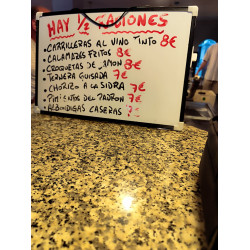 HAY 1/2 RACIONES
• CARRILLERAS AL VINO TINTO 8€
• CALAMARES FRITOS 8€
• CROQUETAS DE JAMON 8€
• TERNERA GUISADA 7€
• CHORIZO A LA SIDRA 7€
• PIMIENTOS DEL PADRON 7€
• ALBONDIGAS CASERAS